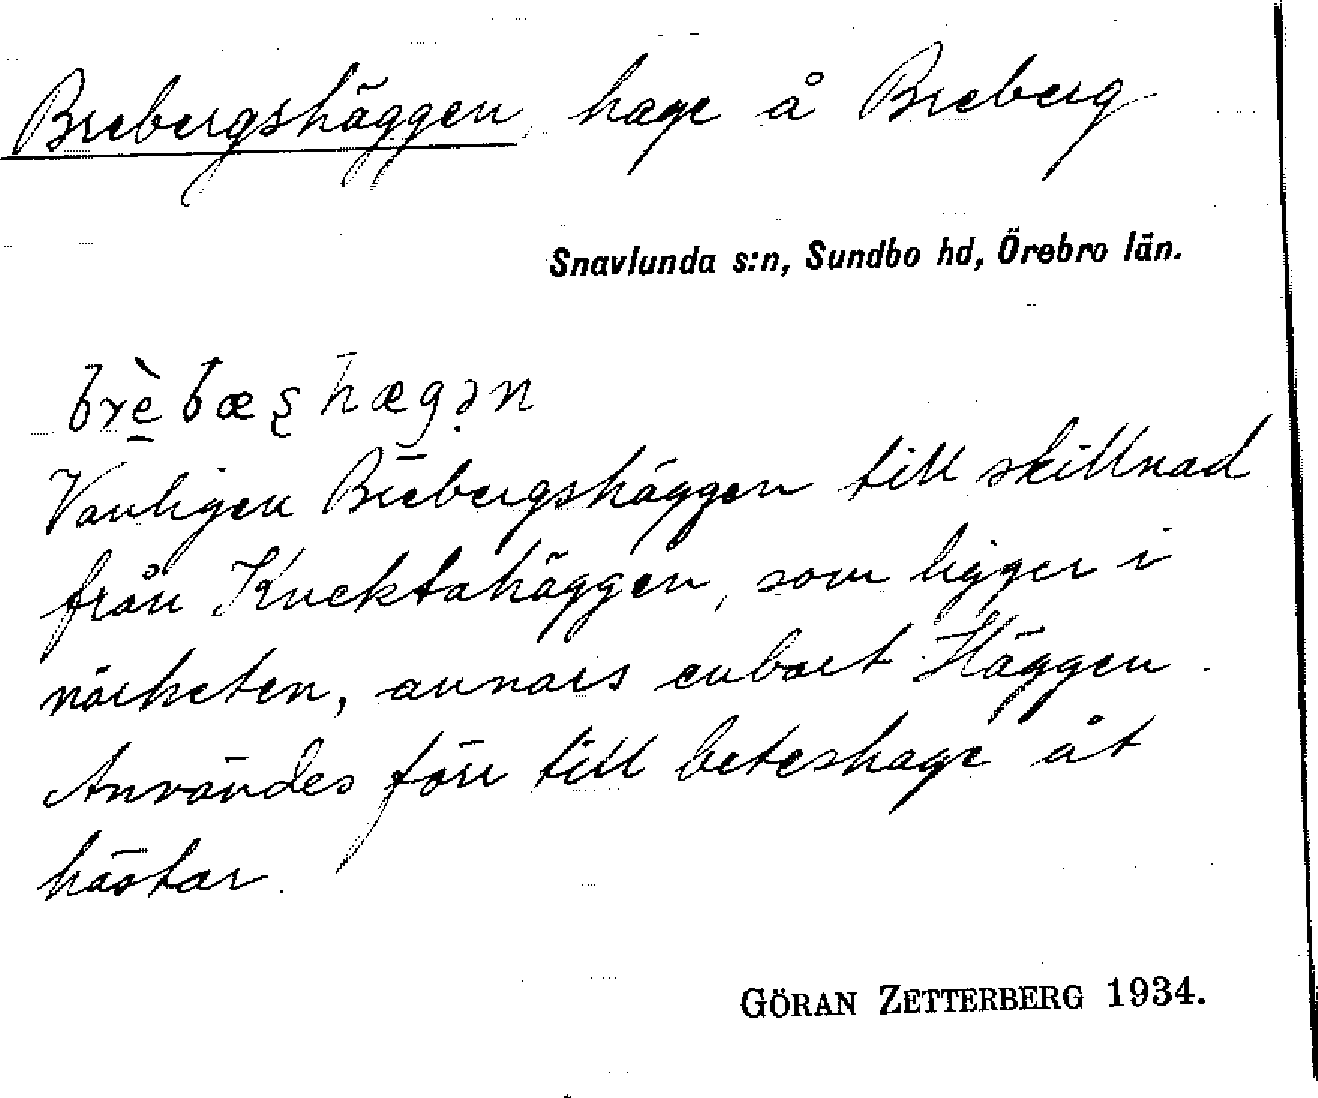 Brebergshäggen, hage å Breberg
Snavlunda s:n, Sundbo hd, Örebro län.
brèbæshægən
Vanligen Brebergshäggen till skillnad
från Knektahäggen, som ligger i
närheten, annars enbart Häggen.
Användes förr till beteshage åt
hästar.
GÖRAN ZETTERBERG 1934.